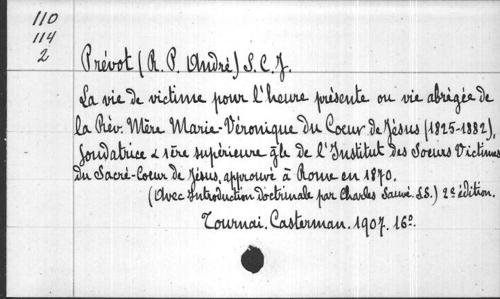 110
114
2
Prévot (R. P. André) S. C. J.
La vie de victime pour l'heure présente ou vie abrégée de
la Rév. Mère Marie-Véronique du Coeur de Jésus (1825-1882),
fondatrice & 1ère supérieure gle de l'Institut des Soeurs Victimes
du Sacré-Coeur de Jésus, approuvé à Rome en 1870.
(Avec Introduction doctrinale par Charles Sauvé. S.S.) 2e édition.
Tournai. Casterman. 1907. 16o.